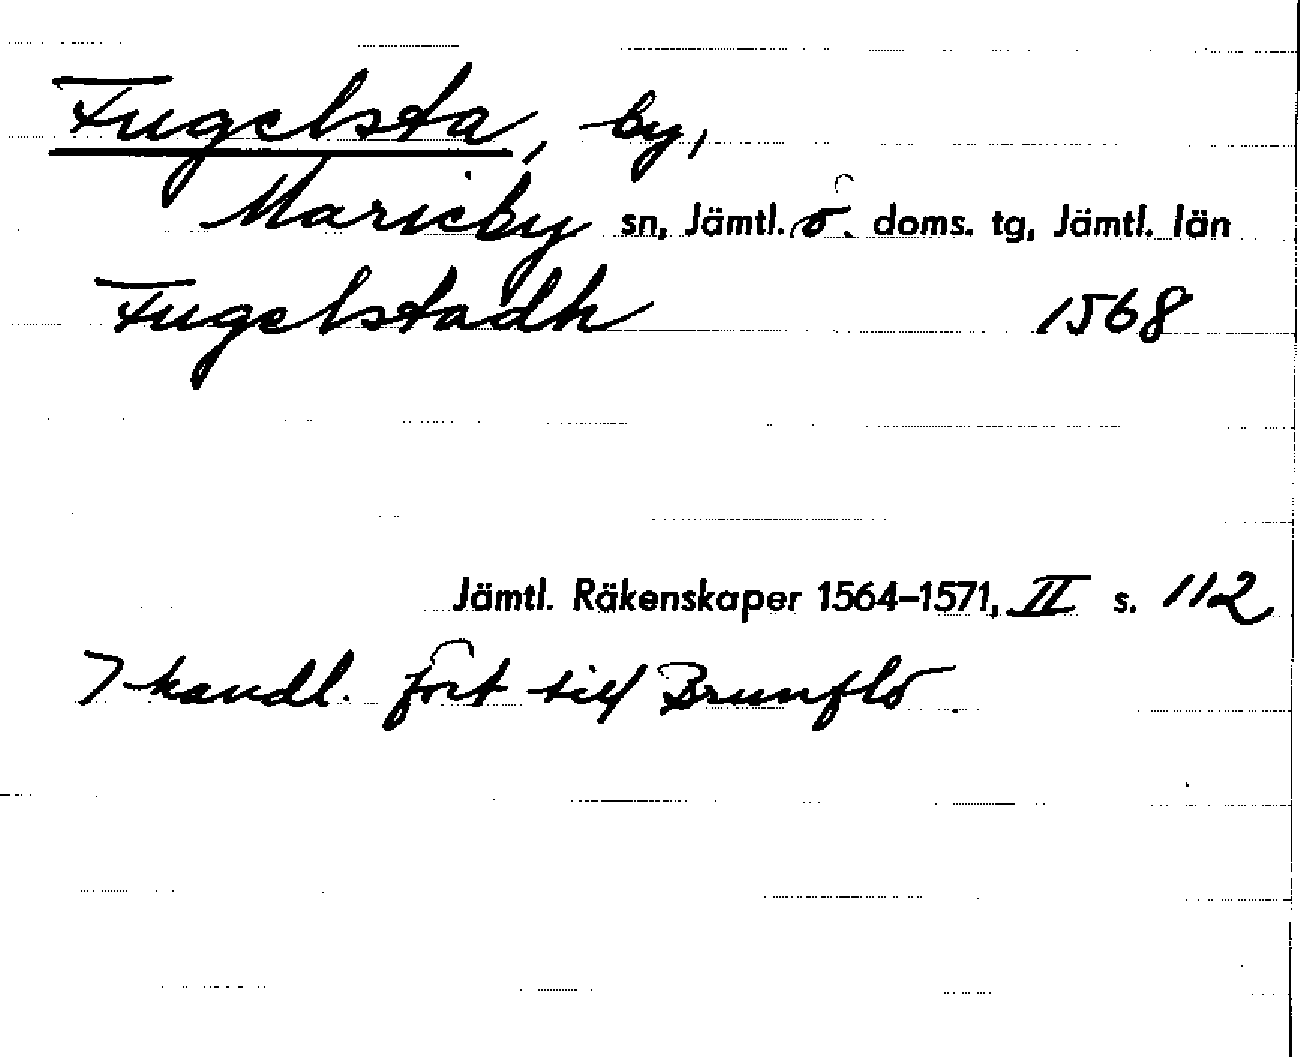 Fugelsta, by,
Marieby sn, Jämtl. ö. doms. tg, Jämtl. län
Fugelstadh 1568
Jämtl. Räkenskaper 1564–1571, II s. 112
I handl. fört till Brunflo.